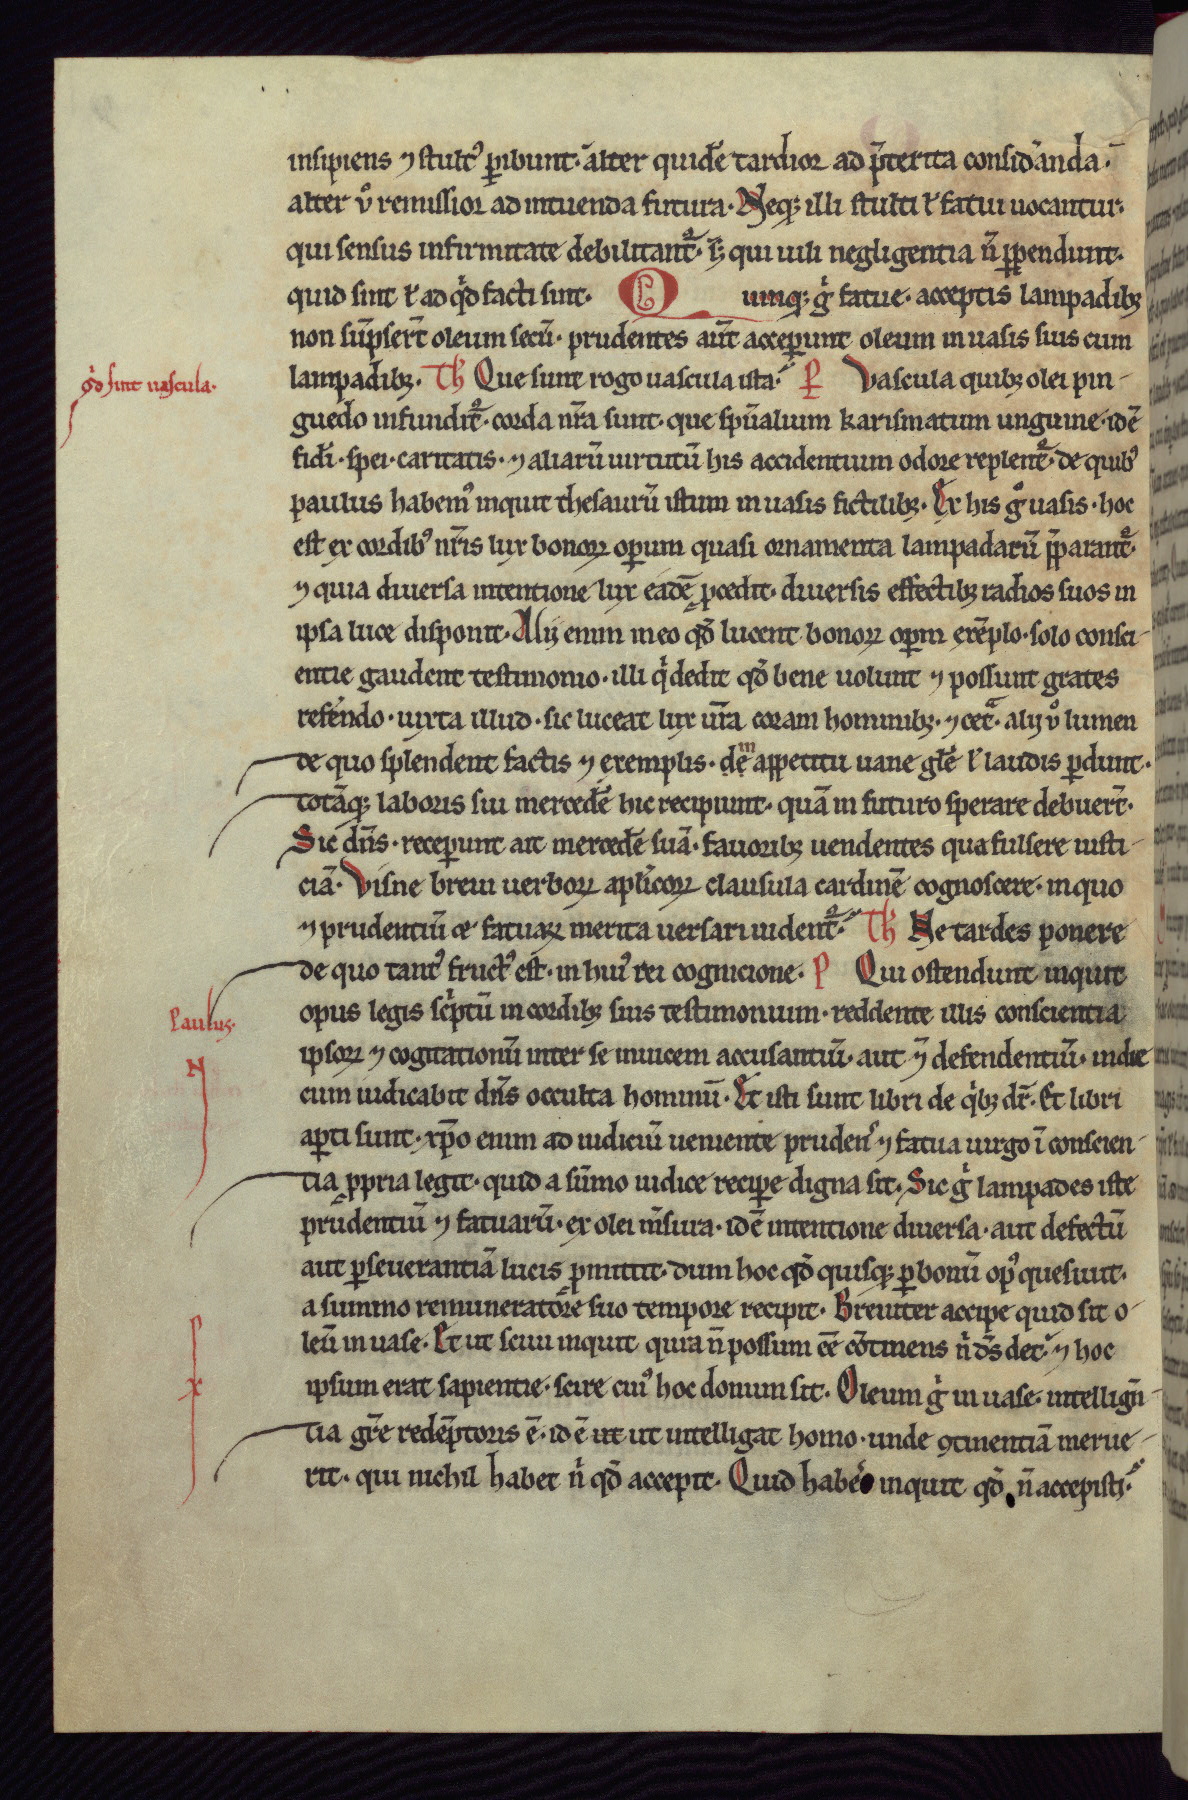 insipiens ⁊ stult᷒ ꝑibunt· alter quidē tardior ad p̄terita consid̓anda·
alter ů remissior ad intuenda futura· Neq; illi stulti ł fatui uocantur·
qui sensus infirmitate debilitant᷑· sꝫ qui uili negligentia n̄ ꝑpendunt·
quid sint ł ad qͥd facti sint· Quinq; gͥ fatue· acceptis lampadibꝫ
non sūpser̄t oleum secū· prudentes aut̄ acceꝑunt oleum in uasis suis cum
qͥd sint uascula·
lampadibꝫ· Th Que sunt rogo uascula ista· P Vascula quibꝫ olei pin-
guedo infundit᷑· corda nr̄a sunt· que sp̄ualium karismatum unguine· idē
fidi· spei· caritatis· ⁊ aliarū uirtutū his accidentium odore replent᷑· de quib᷒
paulus habem᷒ inquit thesaurū istum in uasis fictilibꝫ· Ex his gͦ uasis· hoc
est ex cordib᷒ nr̄is lux bonoꝝ oꝑum quasi ornamenta lampadarū p̄parant᷑·
⁊ quia diuersa intentione lux eadē ꝓcedit· diuersis effectibꝫ radios suos in
ipsa luce disponit· Alij enim in eo qđ lucent bonoꝝ oꝑm exēplo· solo consci-
entie gaudent testimonio· illi qͥ dedit qđ bene uolunt ⁊ possunt grates
refe̓ndo· iuxta illud· sic luceat lux ur̄a coram hominibꝫ· ⁊ cet᷑· alij ů lumen
de quo splendent factis ⁊ exemplis· dem̄ appetitu uane glē ł laudis ꝑdunt·
totāq; laboris sui mercedē hic recipiunt· quā in futuro sperare debuer̄t·
Sic dn̄s· receꝑunt ait mercedē suā· fauoribꝫ uendentes qua fulsere iusti-
ciā· Visne breui uerboꝝ aplicoꝝ clausula cardinē cognoscere· in quo
⁊ prudentiū et fatuaꝝ merita uersari uident᷑· Th Ne tardes ponere
de quo tant᷒ fruct᷒ est· in hui᷒ rei cognicione· P Qui ostendunt inquit
Paulus·
opus legis scͥptū in cordibꝫ suis testimonium· reddente illis conscientia
N
ipsoꝝ ⁊ cogitationū inter se inuicem accusantiū· aut ⁊ defendentiū· in die
cum iudicabit dn̄s occulta hominū· Et isti sunt libri de qͥbꝫ dr̄· Et libri
aꝑti sunt· xp̄o enim ad iudiciū ueniente pruden᷒ ⁊ fatua uirgo ī conscien-
tia ꝓpria legit· quid a sūmo iudice reciꝑe digna sit· Sic gͥ lampades iste
prudentiū ⁊ fatuarū· ex olei m̄sura· idē intentione diuersa· aut defectū
aut ꝑseuerantiā lucis ꝓmittit· dum hoc qđ quisq; ꝑ bonū op᷒ quesiuit·
a summo remuneratore suo tempore recipit· Breuiter accipe quid sit o-
P
leū in uase· Et ut sciui inquit quia n̄ possum ēe cōtinens nͥ ds̄ det· ⁊ hoc
X
ipsum erat sapientie· scire cui᷒ hoc donum sit· Oleum gͥ in uase· intellign̄-
tia gr̄e redēptoris ē· id ē ut ut intelligat homo· unde ꝯtinentiā merue-
rit· qui nichil habet nͥ qđ accepit· Quid habe̓ inquit qđ n̄ accepisti·